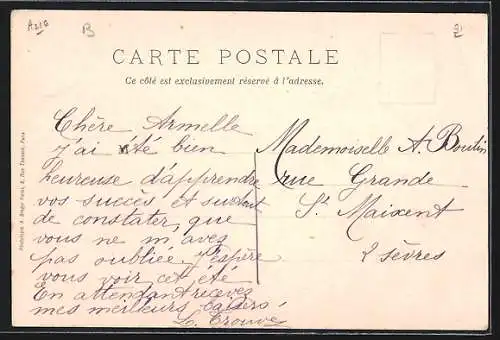 CARTE POSTALE
Ce côté est exclusivement réservé à l'adresse.
Chère Armelle
j'ai été bien
heureuse d'apprendre
vos succès et surtout
de constater, que
vous ne m'avez
pas oubliée. J'espère
vous voir cet été
En attendant recevez
mes meilleurs baisers
L. Trouvé
Mademoiselle A. Boutin
rue Grande
St Maixent
2 sèvres